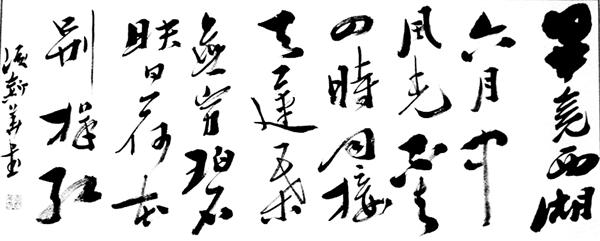 畢竟西湖
六月中
風光不与
四時同接
天蓮葉
無窮碧
映日荷花
别樣紅